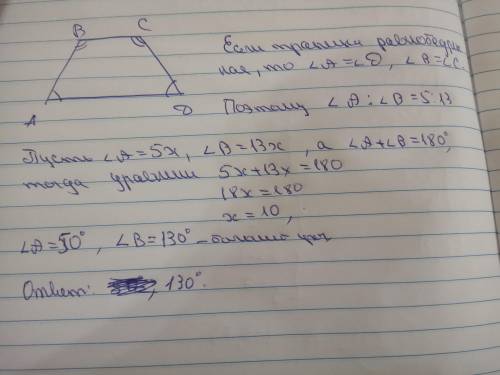 B C
A D
Если трапеция равнобедрен
ная, то ∠A=∠D, ∠B=∠C.
Поэтому ∠A:∠B=5:13
Пусть ∠A=5x, ∠B=13x, а ∠A+∠B=180°,
тогда 5x+13x=180
18x=180
x=10,
∠A=50°, ∠B=130° – больший
Ответ: , 130°.